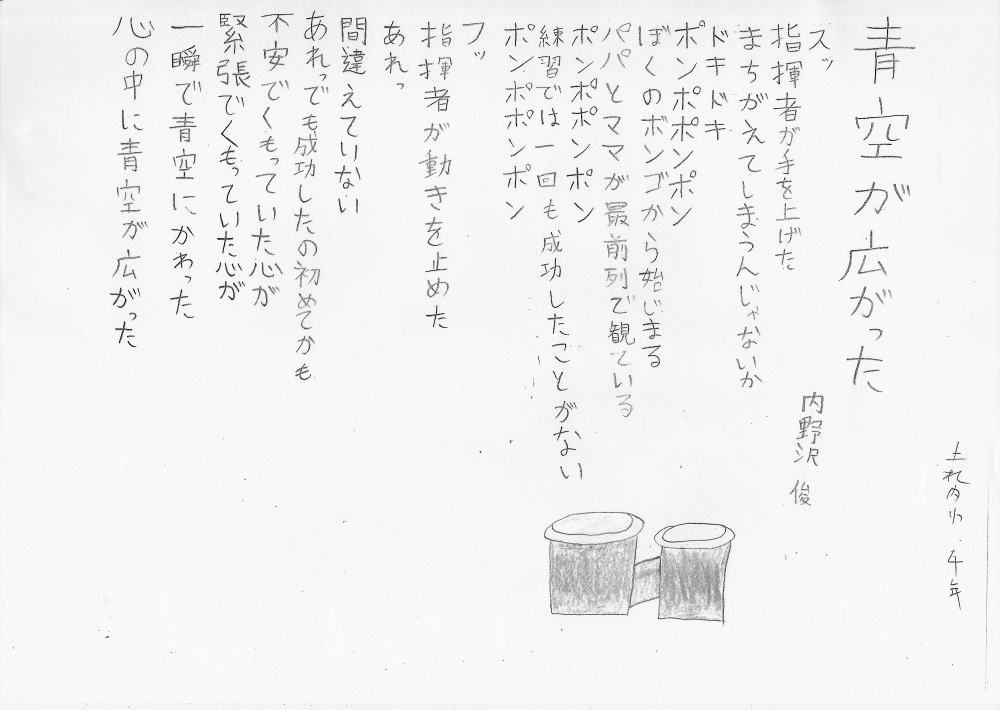 青空が広がった
上札内小 4年
内野沢 俊
スッ
指揮者が手を上げた
まちがえてしまうんじゃないか
ドキドキ
ポンポポンポン
ぼくのボンゴから始じまる
パパとママが最前列で観ている
ポンポポンポン
練習では一回も成功したことがない
ポンポポンポン
フッ
指揮者が動きを止めた
あれっ
間違えていない
あれっでも成功したの初めてかも
不安でくもっていた心が
緊張でくもっていた心が
一瞬で青空にかわった
心の中に青空が広がった